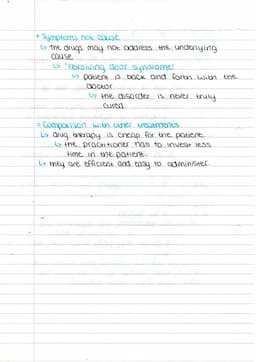 • Symptoms not cause
↳ The drugs may not address the underlying
cause
↳ 'revolving door syndrome'
↳ patient is back and forth with the
doctor
↳ the disorder is never truly
cured
• Comparison with other treatments
↳ drug therapy is cheap for the patient
↳ the practitioner has to invest less
time in the patient
↳ they are efficient and easy to administer.